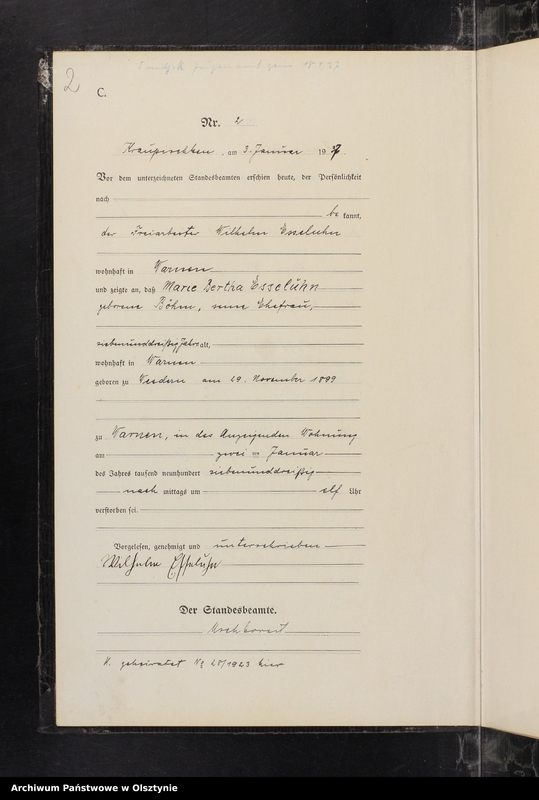 2
C.
Nr. 2
am 3. Januar 1937
Vor dem unterzeichneten Standesbeamten erschien heute, der Persönlichkeit
nach
be kannt,
der Freiarbeiter Wilhelm Esseluhn
wohnhaft in Warnen
und zeigte an, daß Marie Bertha Esselühn
geborene Böhm, seine Ehefrau,
siebenunddreißig Jahre alt,
wohnhaft in Warnen
geboren zu am 29. November 1899
zu Warnen, in des Anzeigenden Wohnung
am zwei ten Januar
des Jahres tausend neunhundert siebenunddreißig
nach mittags um elf Uhr
verstorben sei.
Vorgelesen, genehmigt und unterschrieben
Wilhelm Esseluhn
Der Standesbeamte.
geheiratet 1923 hier
Archiwum Państwowe w Olsztynie